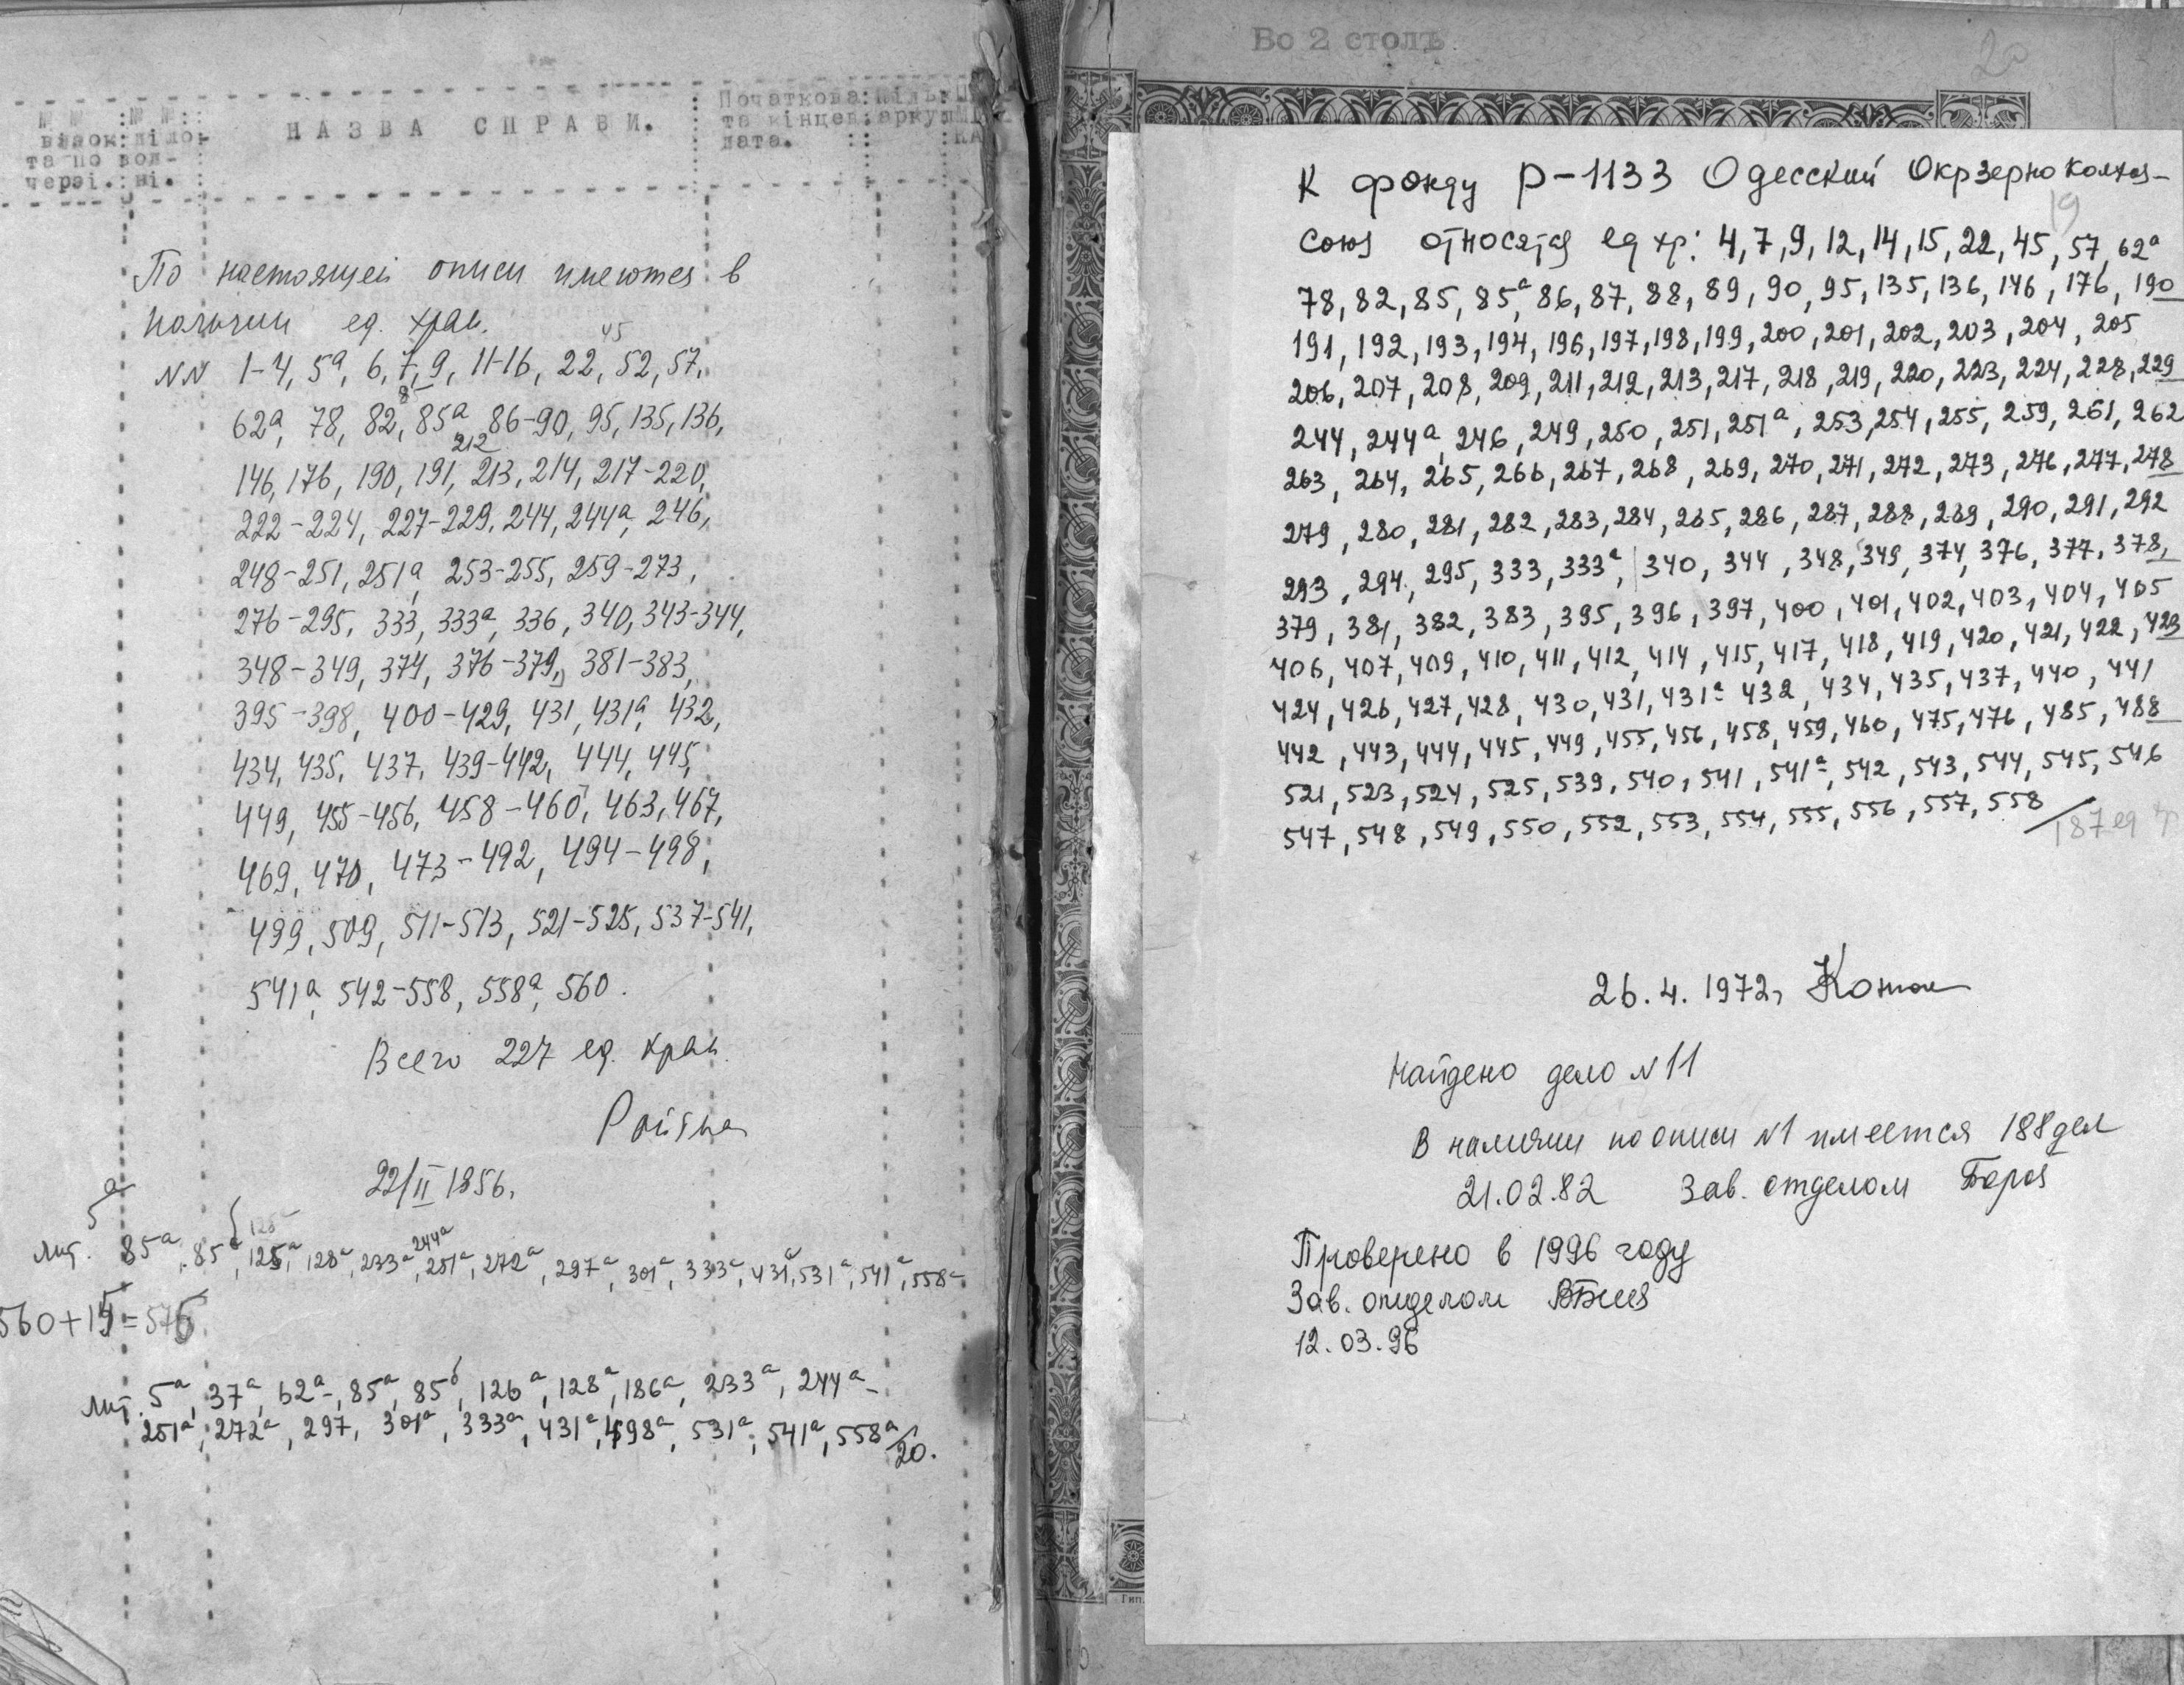 № № вязок та по черзі.
№ № діло- вод- ні.
НАЗВА СПРАВИ.
Початкова та кінцев дата.
По настоящей описи имеются в
наличии ед. хран.
45
NN 1-4, 5а, 6, 7, 9, 11-16, 22, 52, 57,
85
62а, 78, 82, 85а, 86-90, 95, 135, 136,
212
146, 176, 190, 191, 213, 214, 217-220,
222-224, 227-229, 244, 244а, 246,
248-251, 251а, 253-255, 259-273,
276-295, 333, 333а, 336, 340, 343-344,
348-349, 374, 376-379, 381-383,
395-398, 400-429, 431, 431а, 432,
434, 435, 437, 439-442, 444, 445,
449, 455-456, 458-460, 463, 467,
469, 470, 473-492, 494-498,
499, 509, 511-513, 521-525, 537-541,
541а, 542-558, 558а, 560.
Всего 227 ед. хран.
22/II 1956.
5а
244а
лит. 85а, 85б, 125а, 128а, 233а, 251а, 272а, 297а, 301а, 333а, 431а, 531а, 541а, 558а
560+15=575
лит. 5а, 37а, 62а, 85а, 85б, 126а, 128а, 186а, 233а, 244а
251а, 272а, 297, 301а, 333а, 431а, 498а, 531а, 541а, 558а/20.
Во 2 столъ
20
К фонду Р-1133 Одесский Окрзерноколхоз-
19
союз относятся ед хр: 4, 7, 9, 12, 14, 15, 22, 45, 57, 62а
78, 82, 85, 85а, 86, 87, 88, 89, 90, 95, 135, 136, 146, 176, 190
191, 192, 193, 194, 196, 197, 198, 199, 200, 201, 202, 203, 204, 205
206, 207, 208, 209, 211, 212, 213, 217, 218, 219, 220, 223, 224, 228, 229
244, 244а, 246, 249, 250, 251, 251а, 253, 254, 255, 259, 261, 262
263, 264, 265, 266, 267, 268, 269, 270, 271, 272, 273, 276, 277, 278
279, 280, 281, 282, 283, 284, 285, 286, 287, 288, 289, 290, 291, 292
293, 294, 295, 333, 333а, 340, 344, 348, 349, 374, 376, 377, 378,
379, 381, 382, 383, 395, 396, 397, 400, 401, 402, 403, 404, 405
406, 407, 409, 410, 411, 412, 414, 415, 417, 418, 419, 420, 421, 422, 423
424, 426, 427, 428, 430, 431, 431а 432, 434, 435, 437, 440, 441
442, 443, 444, 445, 449, 455, 456, 458, 459, 460, 475, 476, 485, 488
521, 523, 524, 525, 539, 540, 541, 541а, 542, 543, 544, 545, 546
547, 548, 549, 550, 552, 553, 554, 555, 556, 557, 558
187 ед хр
26.4.1972,
Найдено дело №11
В наличии по описи №1 имеется 188 дел
21.02.82 Зав. отделом
Проверено в 1996 году
Зав. отделом
12.03.96
Гип.